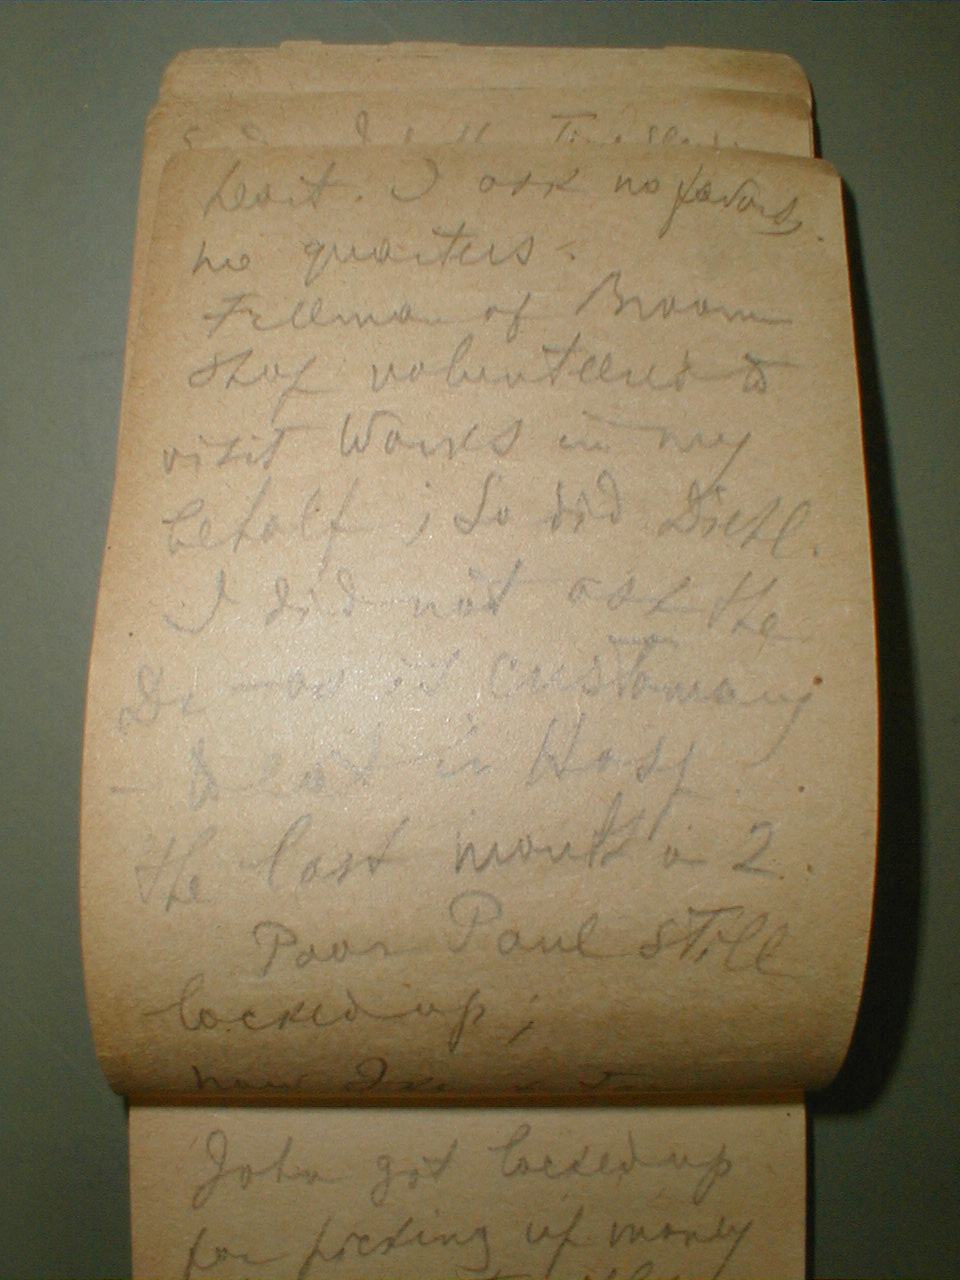 heart. I ask no favors.
no quarters -
Freeman of Broom
shop volunteered to
visit Works in my
behalf; So did Dietl.
I did not ask the
Dr - as is customary
- to eat in Hosp.
the last month or 2.
Poor Paul still
locked up;
now
John got locked up
for picking up money